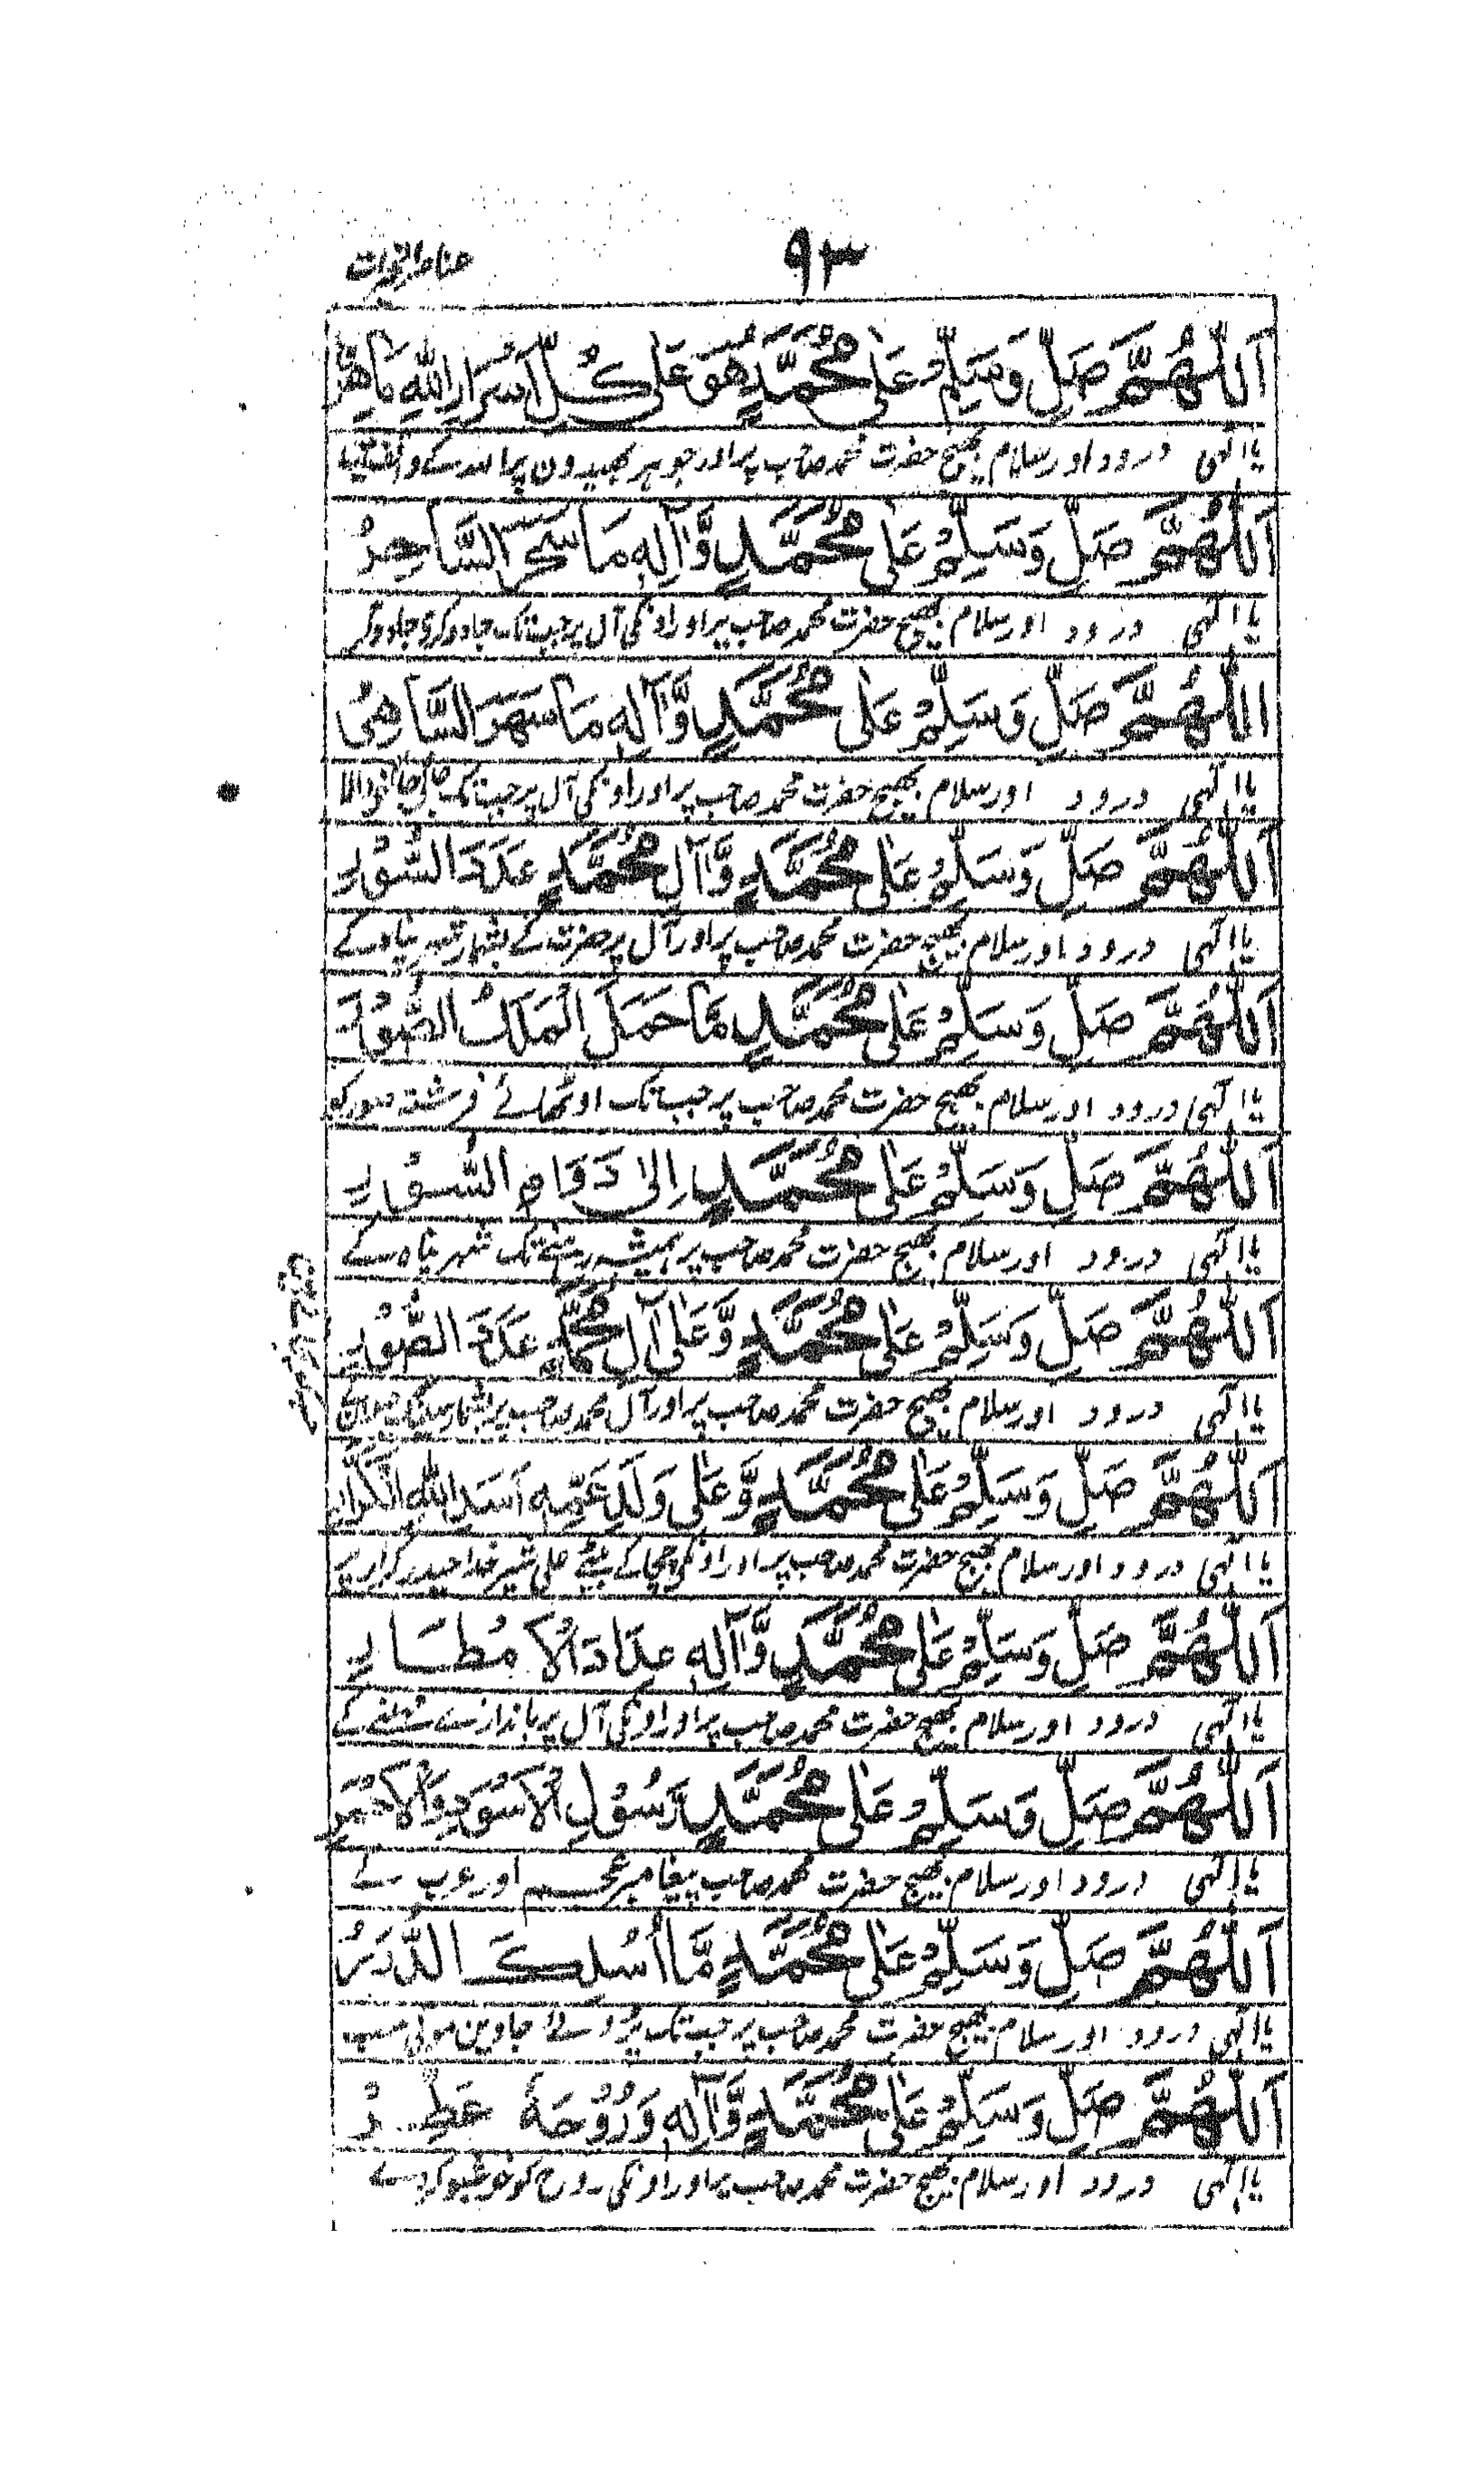 ٩٣
اَللّٰهُمَّ صَلِّ وَسَلِّمْ عَلٰى مُحَمَّدٍ هُوَ عَلٰى كُلِّ اَسْرَارِ اللّٰهِ مَاهِرٌ
یا الٰہی درود اور سلام بھیج حضرت محمد صاحب پر اور جو ہر بھیدون پر اللہ کے واقف
اَللّٰهُمَّ صَلِّ وَسَلِّمْ عَلٰى مُحَمَّدٍ وَّاٰلِهٖ مَا سَحَرَ السَّاحِرُ
یا الٰہی درود اور سلام بھیج حضرت محمد صاحب پر اور اونکی آل پر جب تک جادو کری جادوگر
اَللّٰهُمَّ صَلِّ وَسَلِّمْ عَلٰى مُحَمَّدٍ وَّاٰلِهٖ مَا سَهَرَ السَّاهِرُ
یا الٰہی درود اور سلام بھیج حضرت محمد صاحب پر اور اونکی آل پر جب تک
اَللّٰهُمَّ صَلِّ وَسَلِّمْ عَلٰى مُحَمَّدٍ وَّاٰلِ مُحَمَّدٍ عَدَدَ السُّوْرِ
یا الٰہی درود اور سلام بھیج حضرت محمد صاحب پر اور آل پر حضرت کے بشمار شہر پناہ کے
اَللّٰهُمَّ صَلِّ وَسَلِّمْ عَلٰى مُحَمَّدٍ مَّا حَمَلَ الْمَلَكُ الصُّوْرَ
یا الٰہی درود اور سلام بھیج حضرت محمد صاحب پر جب تک اوٹھائے فرشتہ صور کو
اَللّٰهُمَّ صَلِّ وَسَلِّمْ عَلٰى مُحَمَّدٍ اِلٰى دَوَامِ السُّوْرِ
یا الٰہی درود اور سلام بھیج حضرت محمد صاحب پر ہمیشہ رہنے تک شہر پناہ کے
اَللّٰهُمَّ صَلِّ وَسَلِّمْ عَلٰى مُحَمَّدٍ وَّعَلٰى اٰلِ مُحَمَّدٍ عَدَدَ الصُّوَرِ
یا الٰہی درود اور سلام بھیج حضرت محمد صاحب پر اور آل محمد صاحب پر بشمار
اَللّٰهُمَّ صَلِّ وَسَلِّمْ عَلٰى مُحَمَّدٍ وَّعَلٰى وَلَدِ عَمِّهٖ اَسَدِ اللّٰهِ الْكَرَّارِ
یا الٰہی درود اور سلام بھیج حضرت محمد صاحب پر اور اونکی چچا کے بیٹے علی شیر خدا حیدر کرار پر
اَللّٰهُمَّ صَلِّ وَسَلِّمْ عَلٰى مُحَمَّدٍ وَّاٰلِهٖ عِدَادَ الْاَمْطَارِ
یا الٰہی درود اور سلام بھیج حضرت محمد صاحب پر اور اونکی آل پر باندازے کے
اَللّٰهُمَّ صَلِّ وَسَلِّمْ عَلٰى مُحَمَّدٍ رَّسُوْلِ الْاَسْوَدِ وَالْاَحْمَرِ
یا الٰہی درود اور سلام بھیج حضرت محمد صاحب پیغامبر عجم اور عرب کے
اَللّٰهُمَّ صَلِّ وَسَلِّمْ عَلٰى مُحَمَّدٍ مَّا اُسْلِكَ الدُّرَرُ
یا الٰہی درود اور سلام بھیج حضرت محمد صاحب پر جب تک پروئے جاوین موتی سب
اَللّٰهُمَّ صَلِّ وَسَلِّمْ عَلٰى مُحَمَّدٍ وَّاٰلِهٖ وَرُوْحَهٗ عَطِّرْ
یا الٰہی درود اور سلام بھیج حضرت محمد صاحب پر اور اونکی روح کو خوشبو کردے